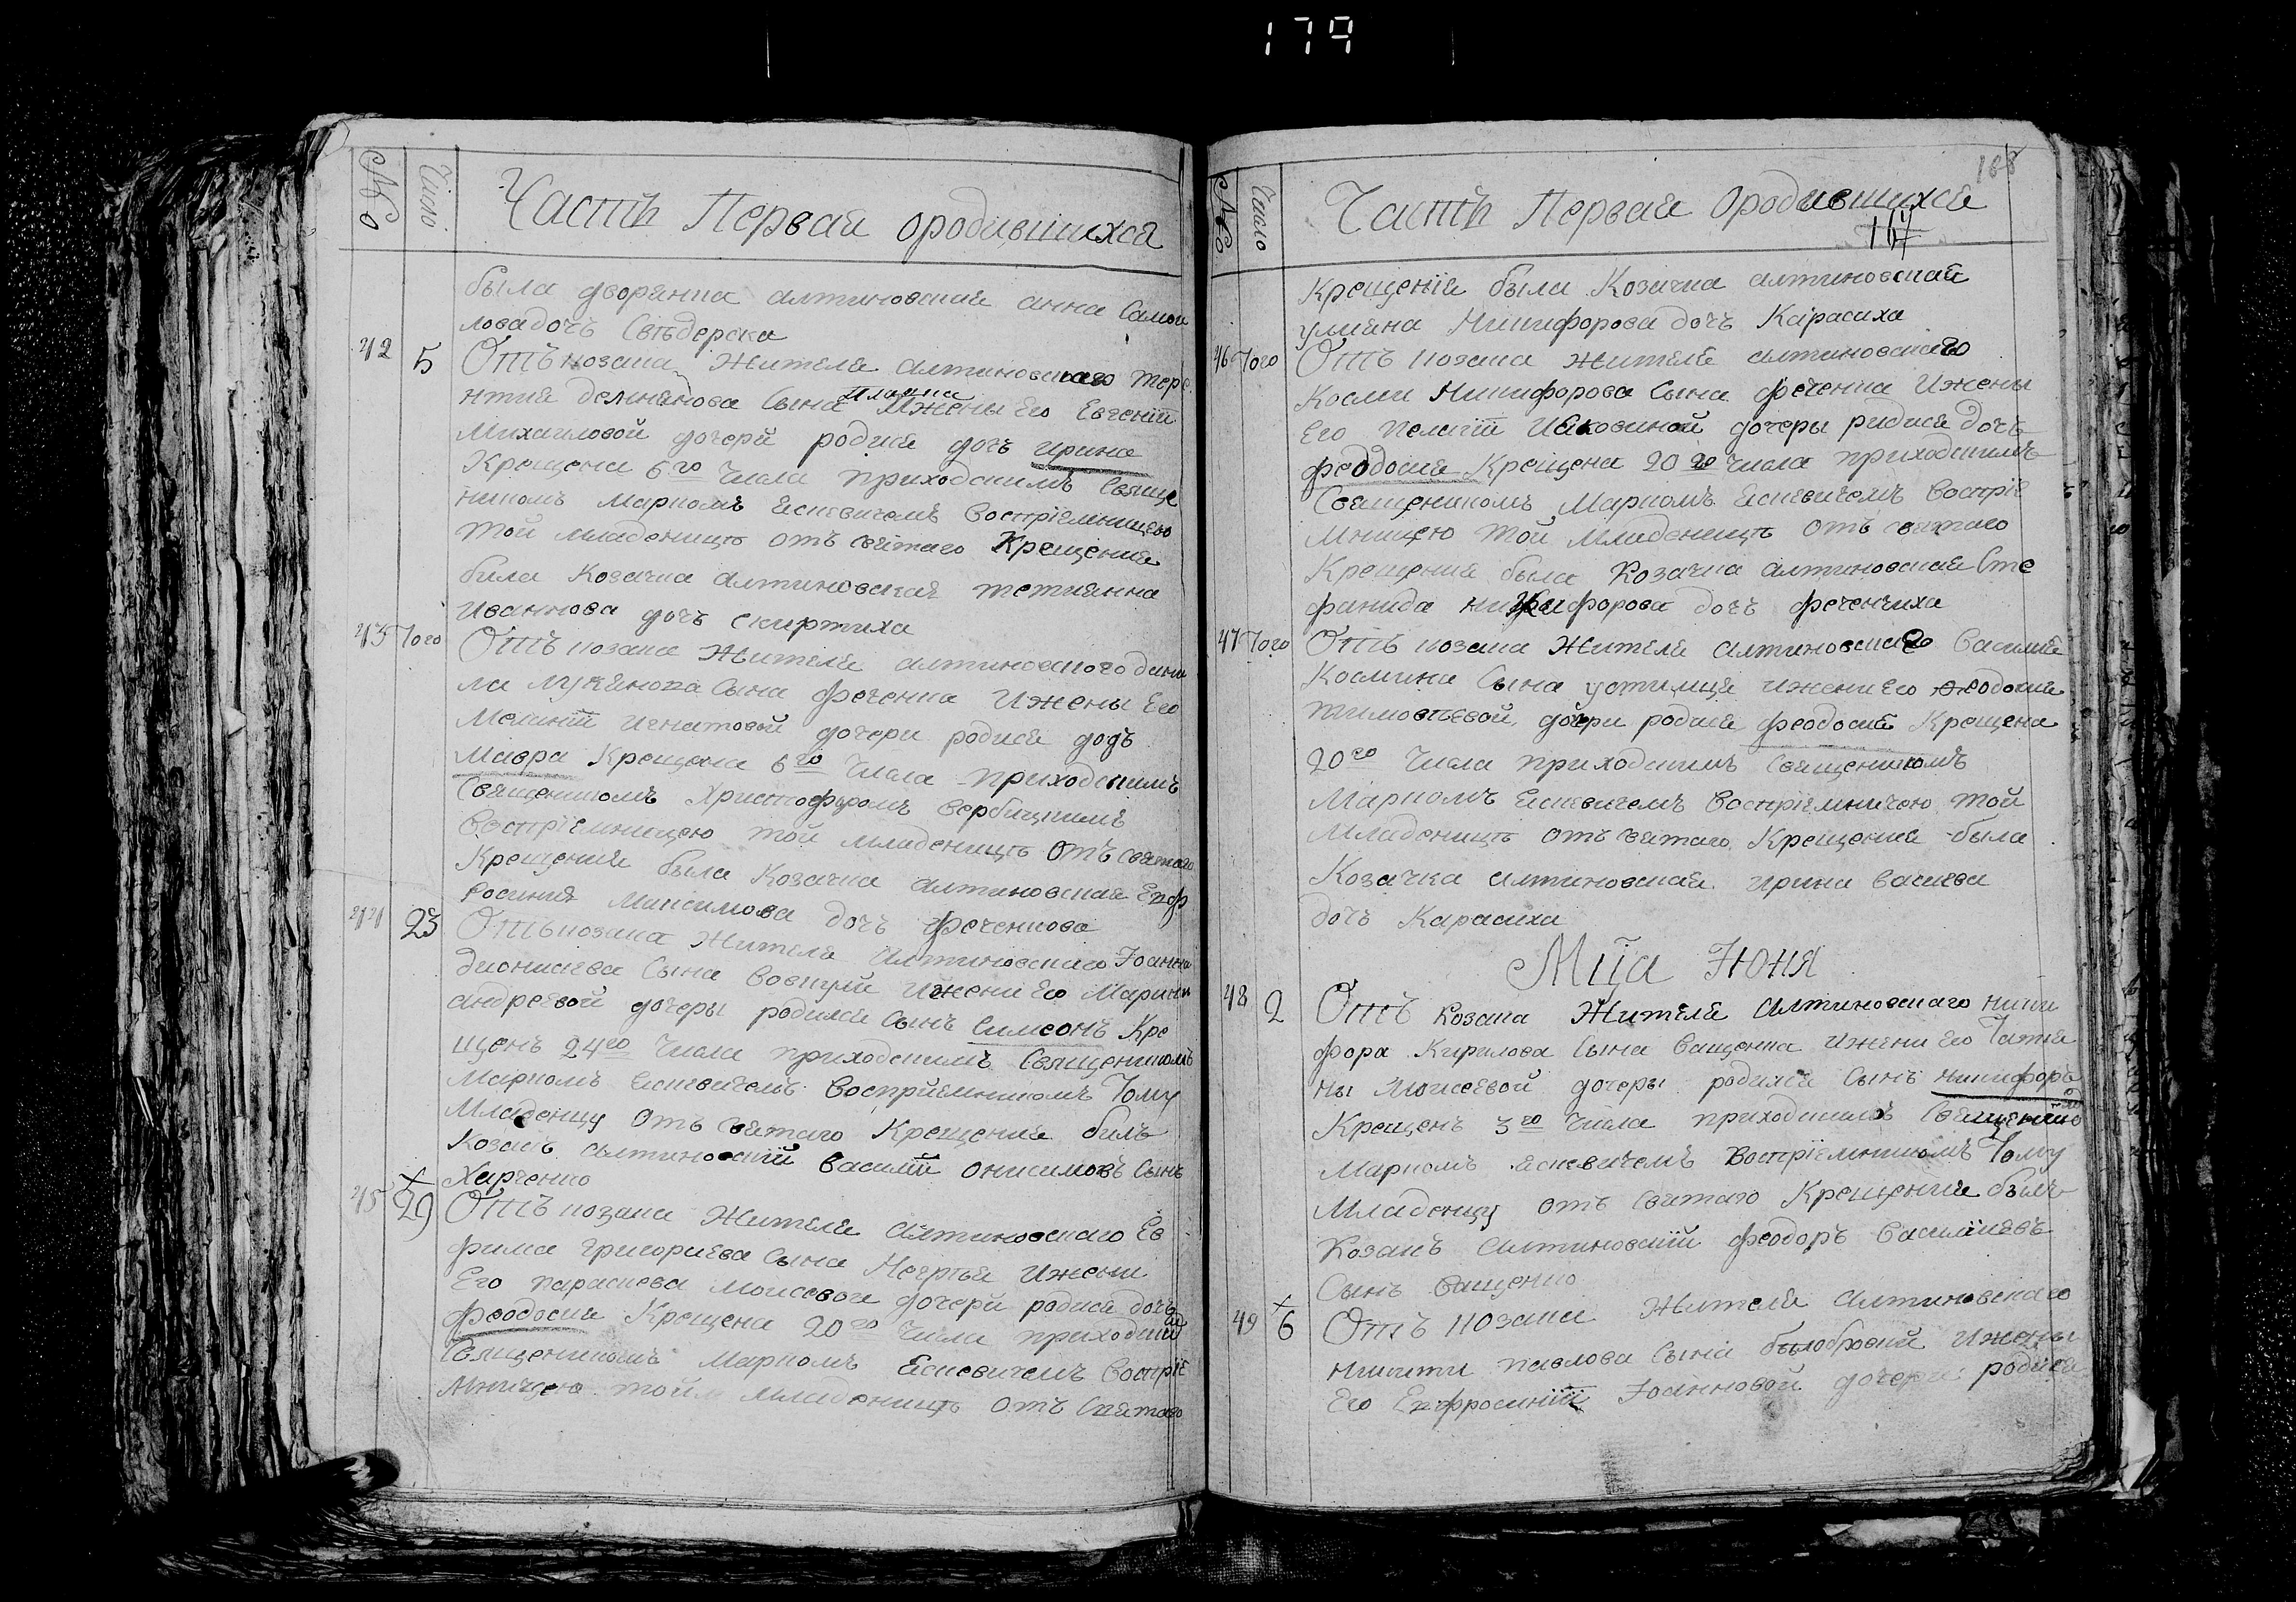 179
№
Число
Часть Первая ородившихся
была дворянка алтиновская анна Самои
лова дочъ Свѣдерска
42 5 Отъ козака Жителя алтиновского тере
нтия Сына Ижены Его Евгении
Михаиловой дочери родися дочъ Ирина
Крещена 6го Числа приходскимъ Свяще
никомъ Маркомъ Есиевичемъ Воспріемницею
той младеницѣ отъ святаго Крещения
била Козачка алтиновская тетиянна
Иваннова дочъ скиртиха
43 Того Отъ козака Жителя алтиновского дани
ла лукянова Сына феченка Ижены Его
Меланіи Игнатовой дочери родися дочъ
Мавра Крещена 6го Числа приходскимъ
Священикомъ Христофоромъ вербицкимъ
Воспріемницею той младеницѣ отъ святаго
Крещения была Козачка алтиновская Евф
росиния Максимова дочъ феченкова
44 23 Отъ козака Жителя Алтиновскаго Іоанна
дионисиева Сына Ижени Его Марини
андреевой дочеры родился Сынъ Симеонъ Кре
щенъ 24го Числа приходскимъ Священикомъ
Маркомъ Есиевичемъ Восприемникомъ Тому
Младенцу отъ святаго Крещения билъ
Козакъ алтиновскій василій онисимовъ Сынъ
Харченко
45 29 Отъ козака Жителя Алтиновскаго Ев
фима григориева Сына Ижени
Его параскева Моисевои дочери родися дочъ
феодосия Крещена 20го Числа приходским
Священикомъ Маркомъ Есиевичемъ Воспріе
мницею той младеницѣ отъ Святаго
№
Число
Часть Первая Ородившихся
188
167
Крещенія была Козачка алтиновская
улияна Никифорова дочъ Карасиха
46 Того Отъ козака Жителя алтиновскаго
Косми Никифорова Сына феченка Ижены
Его Пелагіи Иаковиной дочеры родися дочъ
феодосия Крещена 20го Числа приходскимъ
Священикомъ Маркомъ Есиевичемъ Воспріе
мницею той младеницѣ отъ святаго
Крещения была Козачка алтиновская Сте
фанида никифорова дочъ феченчиха
47 Того Отъ козака Жителя Алтиновскаго Василия
Космина Сына устимця ижени Его феодосии
тимофеевой дочери родися феодосия Крещена
20го Числа приходскимъ священикомъ
Маркомъ Есиевичемъ Воспріемницею той
Младеницѣ отъ святаго Крещения была
Козачка алтиновская ирина васиева
дочъ Карасиха
Мца Іюня
48 2 Отъ Козака Жителя Алтиновскаго ники
фора Кирилова Сына Ващенка Ижени Его Татия
ны Моисеевой дочеры родился Сынъ никифоръ
Крещенъ 3го Числа приходскимъ Священико
Маркомъ Есиевичемъ Воспріемникомъ Тому
Младенцу отъ святаго Крещения былъ
Козакъ Алтиновскій феодоръ Василиевъ
Сынъ Ващенко
49 6 Отъ козака Жителя алтиновскаго
никити павлова Сына билобровки Ижены
Его Евфросиніи Іоанновой дочери родися